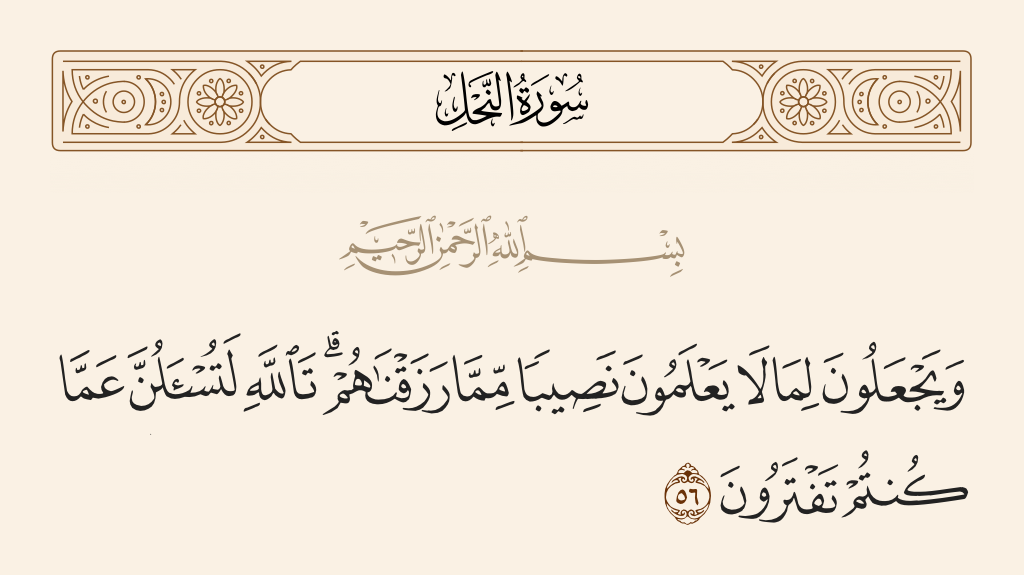 سُورَةُ النَّحْلِ
بِسْمِ ٱللَّهِ ٱلرَّحْمَٰنِ ٱلرَّحِيمِ
وَيَجْعَلُونَ لِمَا لَا يَعْلَمُونَ نَصِيبًا مِّمَّا رَزَقْنَٰهُمْ ۗ تَٱللَّهِ لَتُسْـَٔلُنَّ عَمَّا
كُنتُمْ تَفْتَرُونَ ٥٦